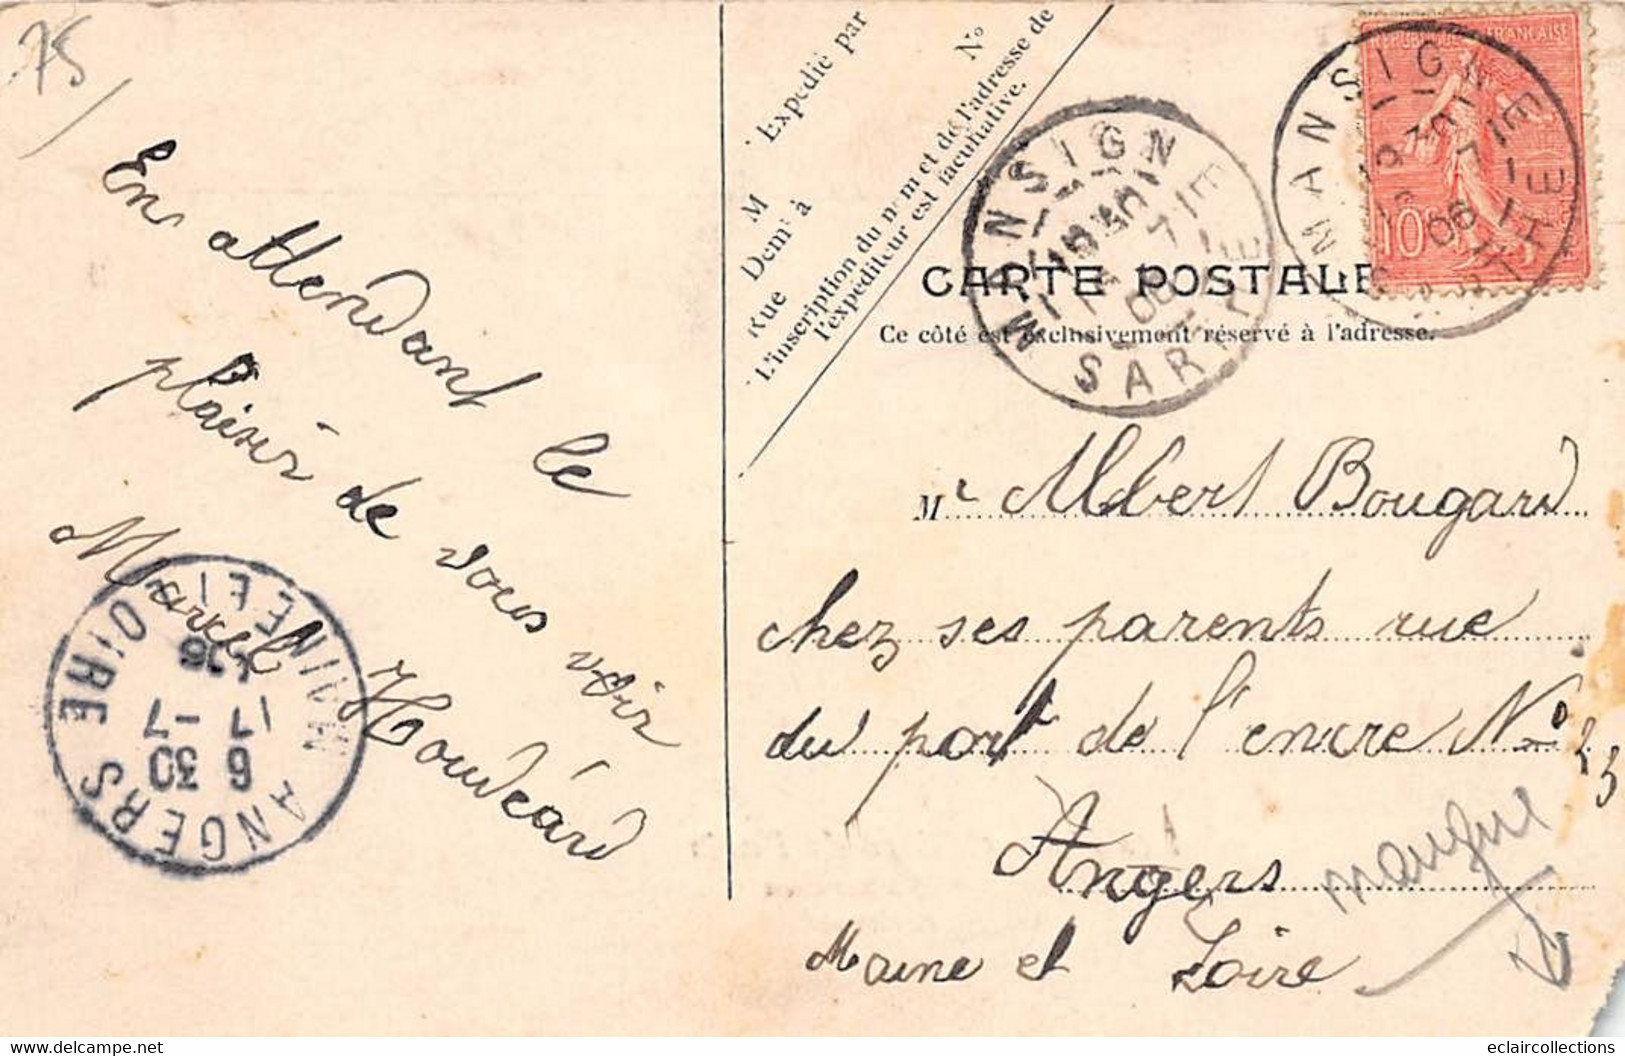 75
En attendant le
plaisir de vous voir
Marcel Houdéard
ANGERS
MAINE ET LOIRE
6 30
17 -7
06
M Expédié par
M N°
Demt à
Rue
L'inscription du nom et de l'adresse de
l'expéditeur est facultative.
MANSIGNE
SARTHE
MANSIGNE
RÉPUBLIQUE FRANÇAISE
10
CARTE POSTALE
Ce côté est exclusivement réservé à l'adresse.
Mr Albert Bougard
chez ses parents rue
du port de l'encre No 23
Angers
Maine et Loire
manque
eclaircollections
© delcampe.net